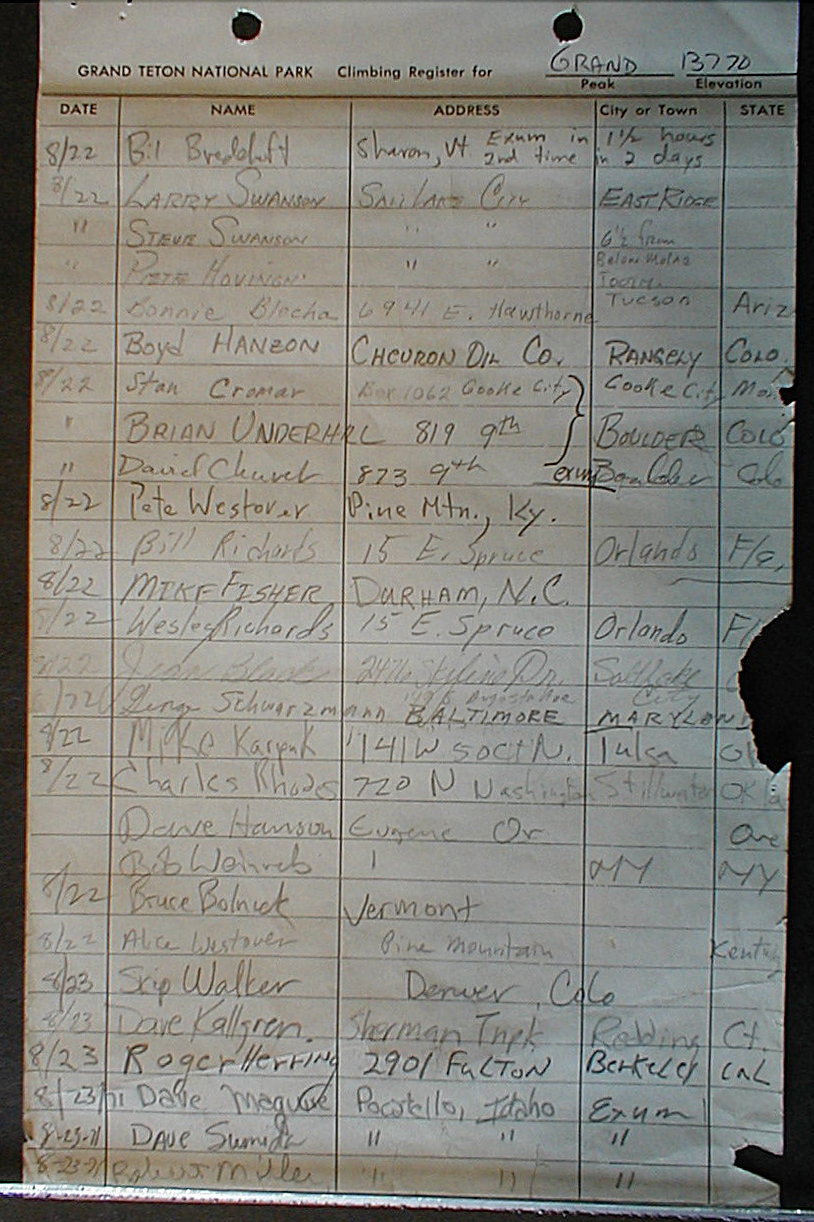 GRAND TETON NATIONAL PARK Climbing Register for GRAND 13770
Peak Elevation
DATE NAME ADDRESS City or Town STATE
8/22 Bil Sharon, Vt Exum in 1 1/2 hours
2nd time in 2 days
8/22 LARRY SWANSON SALT LAKE CITY EAST RIDGE
" STEVE SWANSON " " 6 1/2 from
" PETE " " Below
Tucson
8/22 Bonnie Blecha 6941 E. Hawthorne Tucson Ariz
8/22 Boyd HANZON CHEURON OIL Co. RANGELY COLO.
8/22 Stan Cromar Box 1062 Cooke City Cooke City Mon
" BRIAN UNDERHILL 819 9th BOULDER COLO
" David 873 9th exum Boulder Colo
8/22 Pete Westover Pine Mtn., Ky.
8/22 Bill Richards 15 E. Spruce Orlando Fla.
8/22 MIKE FISHER DURHAM, N.C.
8/22 Wesley Richards 15 E. Spruce Orlando Fl
8/22 Jean Dr. Salt Lake
City
8/22 Schwarzmann BALTIMORE MARYLAND
8/22 Mike 141 W Tulsa OK
8/22 Charles Rhodes 720 N Washington Stillwater Okla
Dave Hanson Eugene Or Ore
Bob Weinreb NY NY
8/22 Bruce Bolnick Vermont
8/22 Alice Westover Pine Mountain Kentucky
8/23 Skip Walker Denver, Colo
8/23 Dave Kallgren. Sherman Tnpk Redding Ct.
8/23 Roger Herring 2901 FULTON Berkeley CAL
8/23/71 Dave Maguire Pocatello, Idaho Exum
8-23-71 DAVE Sumida " " "
8-23-71 Robert Miller " " "